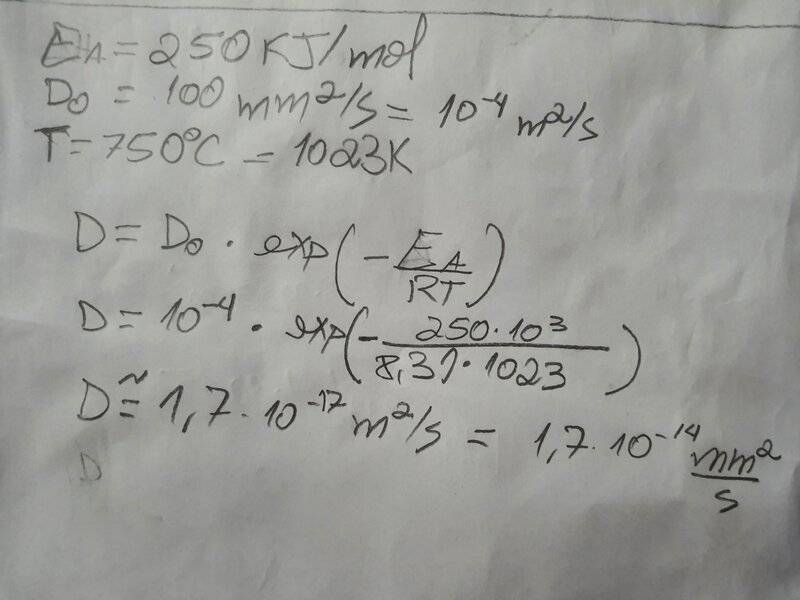 EA = 250 KJ/mol
D₀ = 100 mm²/s = 10⁻⁴ m²/s
T = 750°C = 1023K
D = D₀ · exp(-EA/RT)
D = 10⁻⁴ · exp(-250·10³/8,31·1023)
D ≅ 1,7·10⁻¹⁷ m²/s = 1,7·10⁻¹⁴ mm²/s
D